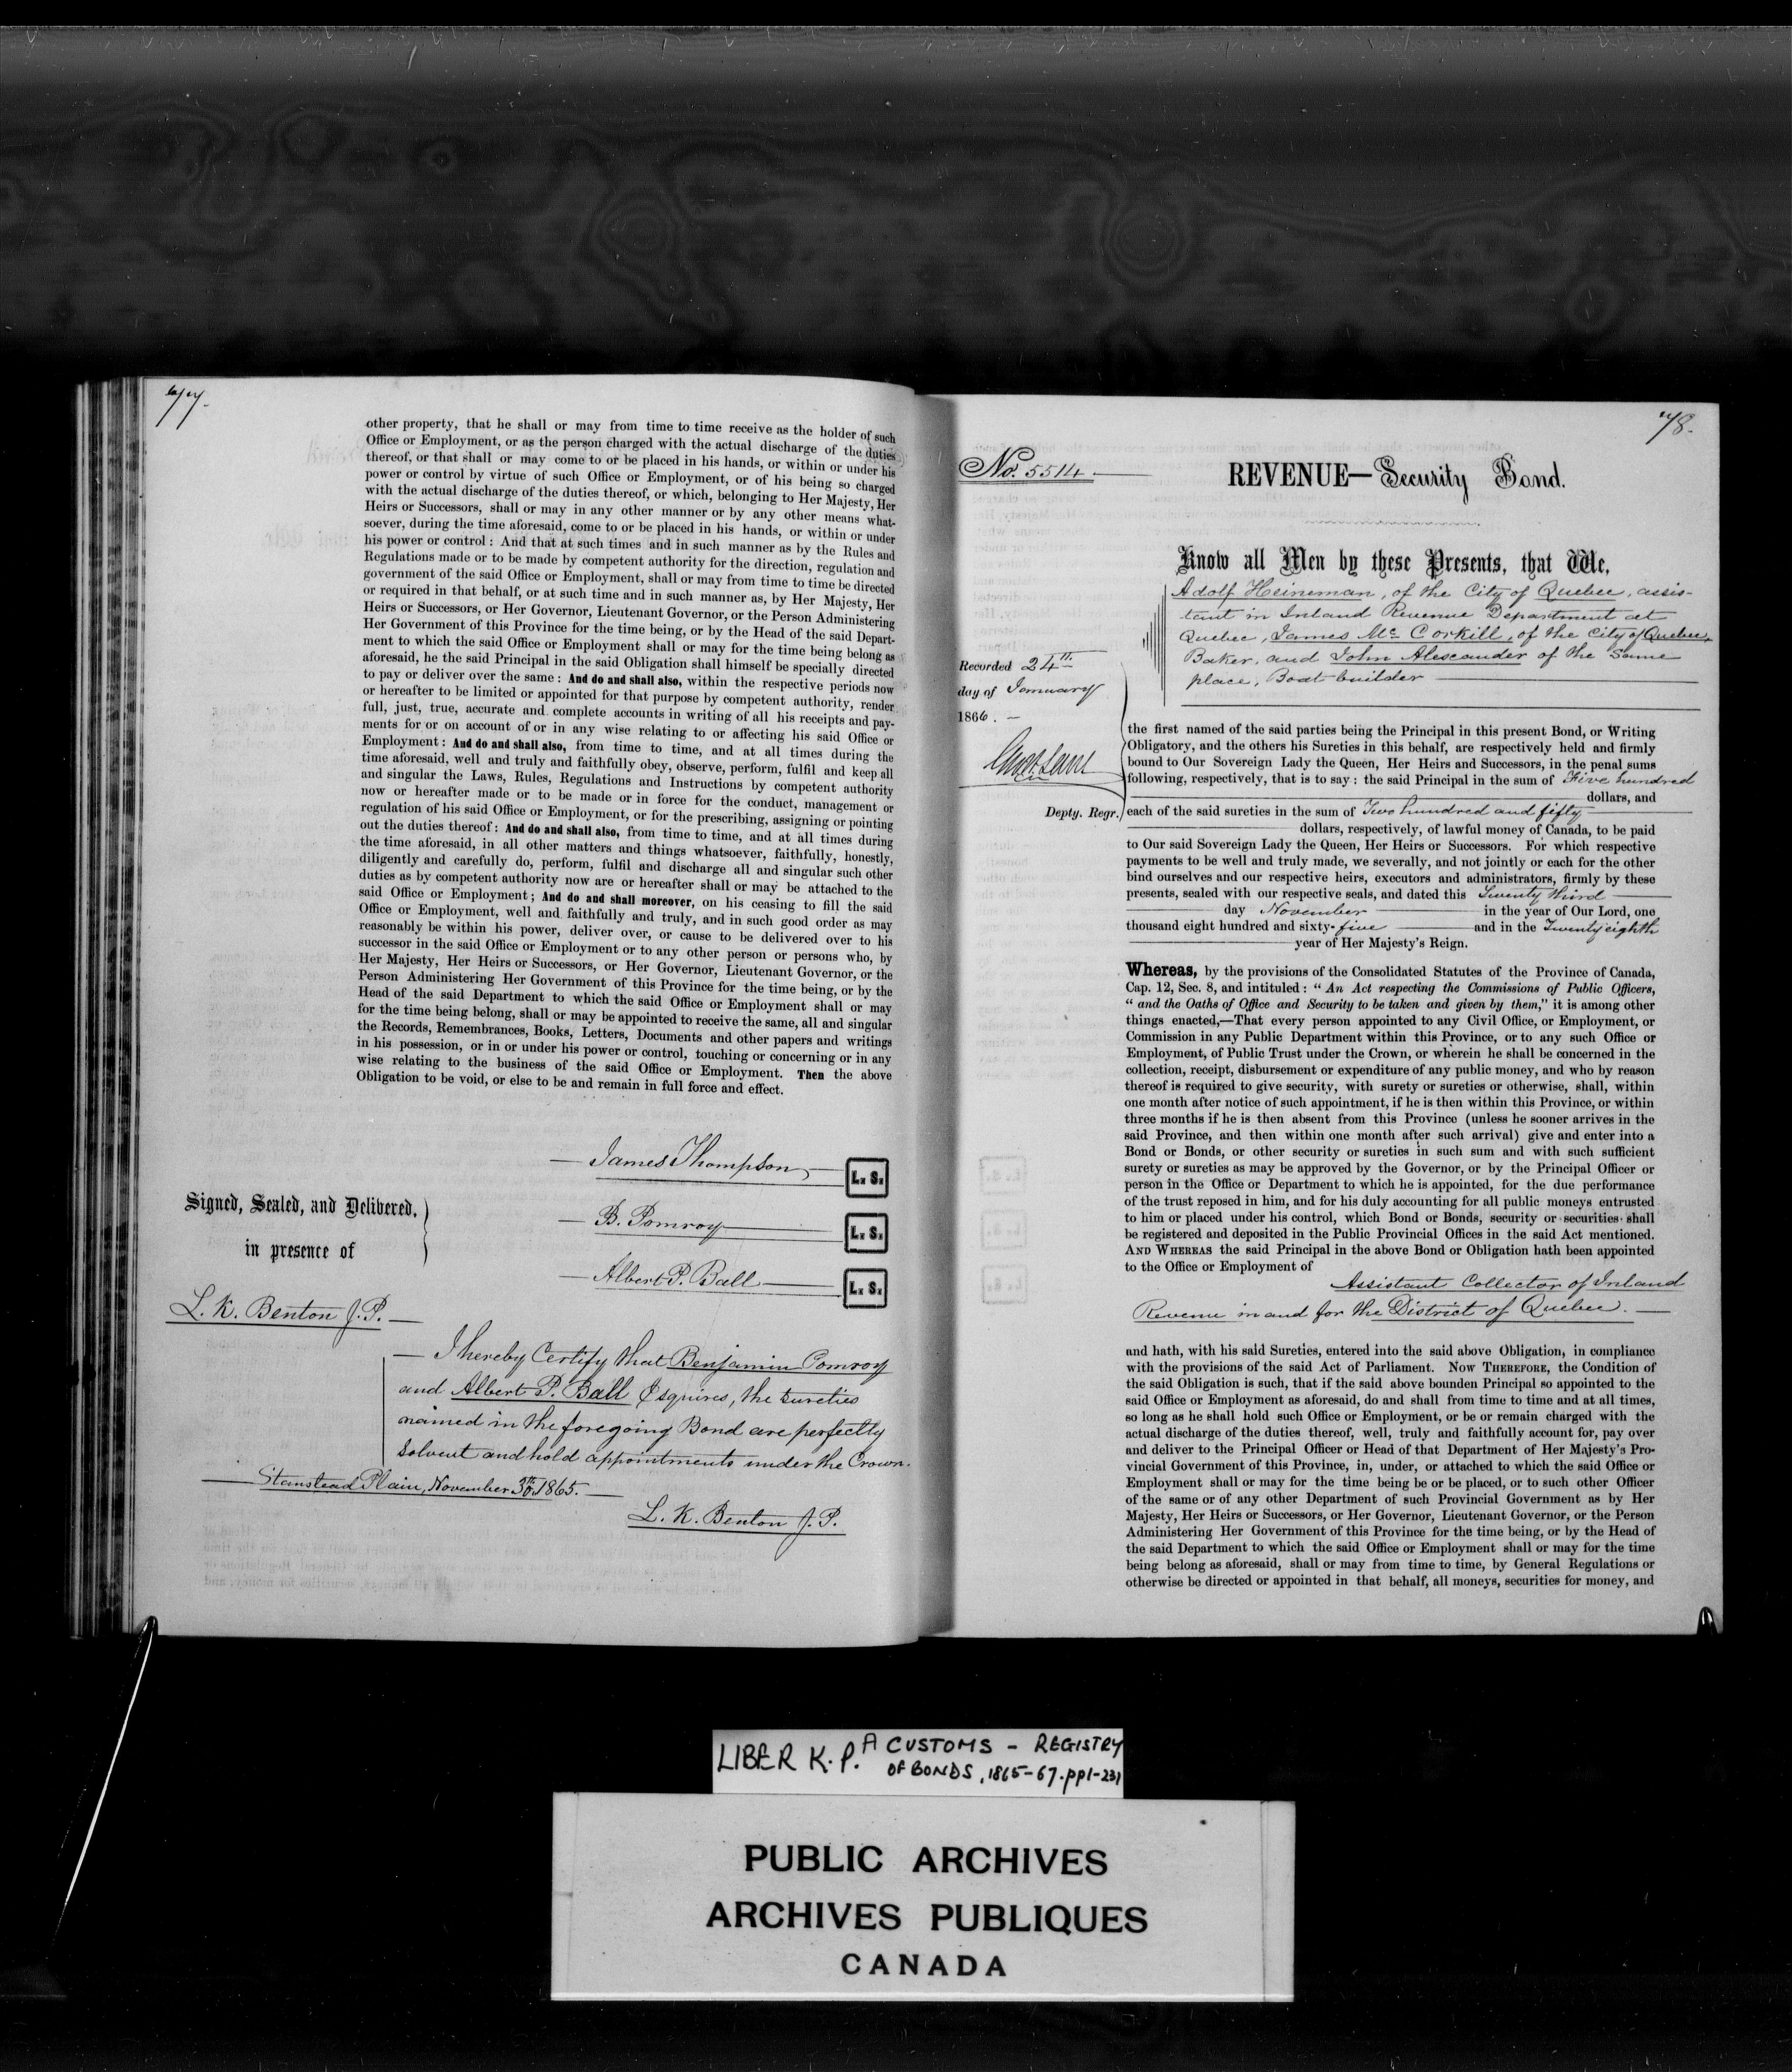 77.
other property, that he shall or may from time to time receive as the holder of such
Office or Employment, or as the person charged with the actual discharge of the duties
thereof, or that shall or may come to or be placed in his hands, or within or under his
power or control by virtue of such Office or Employment, or of his being so charged
with the actual discharge of the duties thereof, or which, belonging to Her Majesty, Her
Heirs or Successors, shall or may in any other manner or by any other means what-
soever, during the time aforesaid, come to or be placed in his hands, or within or under
his power or control : And that at such times and in such manner as by the Rules and
Regulations made or to be made by competent authority for the direction, regulation and
government of the said Office or Employment, shall or may from time to time be directed
or required in that behalf, or at such time and in such manner as, by Her Majesty, Her
Heirs or Successors, or Her Governor, Lieutenant Governor, or the Person Administering
Her Government of this Province for the time being, or by the Head of the said Depart-
ment to which the said Office or Employment shall or may for the time being belong as
aforesaid, he the said Principal in the said Obligation shall himself be specially directed
to pay or deliver over the same : And do and shall also, within the respective periods now
or hereafter to be limited or appointed for that purpose by competent authority, render
full, just, true, accurate and complete accounts in writing of all his receipts and pay-
ments for or on account of or in any wise relating to or affecting his said Office or
Employment : And do and shall also, from time to time, and at all times during the
time aforesaid, well and truly and faithfully obey, observe, perform, fulfil and keep all
and singular the Laws, Rules, Regulations and Instructions by competent authority
now or hereafter made or to be made or in force for the conduct, management or
regulation of his said Office or Employment, or for the prescribing, assigning or pointing
out the duties thereof : And do and shall also, from time to time, and at all times during
the time aforesaid, in all other matters and things whatsoever, faithfully, honestly,
diligently and carefully do, perform, fulfil and discharge all and singular such other
duties as by competent authority now are or hereafter shall or may be attached to the
said Office or Employment ; And do and shall moreover, on his ceasing to fill the said
Office or Employment, well and faithfully and truly, and in such good order as may
reasonably be within his power, deliver over, or cause to be delivered over to his
successor in the said Office or Employment or to any other person or persons who, by
Her Majesty, Her Heirs or Successors, or Her Governor, Lieutenant Governor, or the
Person Administering Her Government of this Province for the time being, or by the
Head of the said Department to which the said Office or Employment shall or may
for the time being belong, shall or may be appointed to receive the same, all and singular
the Records, Remembrances, Books, Letters, Documents and other papers and writings
in his possession, or in or under his power or control, touching or concerning or in any
wise relating to the business of the said Office or Employment. Then the above
Obligation to be void, or else to be and remain in full force and effect.
James Thompson L. S.
Signed, Sealed, and Delivered,
B. Pomroy L. S.
in presence of
Albert P. Ball L. S.
L. K. Benton J. P.
I hereby Certify that Benjamin Pomroy
and Albert P. Ball Esquires, the sureties
named in the foregoing Bond are perfectly
solvent and hold appointments under the Crown.
Stanstead Plain, November 30th 1865.
L. K. Benton J. P.
78.
No. 5514
REVENUE—Security Bond.
Know all Men by these Presents, that We,
Adolf Heineman, of the City of Quebec, assis-
tant in Inland Revenue Department at
Quebec, James Mc Corkill, of the City of Quebec,
Baker, and John Alexander of the same
place, Boat-builder
Recorded 24th
day of January
1866.
Depty. Regr.
the first named of the said parties being the Principal in this present Bond, or Writing
Obligatory, and the others his Sureties in this behalf, are respectively held and firmly
bound to Our Sovereign Lady the Queen, Her Heirs and Successors, in the penal sums
following, respectively, that is to say : the said Principal in the sum of Five hundred
dollars, and
each of the said sureties in the sum of Two hundred and fifty
dollars, respectively, of lawful money of Canada, to be paid
to Our said Sovereign Lady the Queen, Her Heirs or Successors. For which respective
payments to be well and truly made, we severally, and not jointly or each for the other
bind ourselves and our respective heirs, executors and administrators, firmly by these
presents, sealed with our respective seals, and dated this Twenty third
day November in the year of Our Lord, one
thousand eight hundred and sixty-five and in the Twenty eighth
year of Her Majesty's Reign.
Whereas, by the provisions of the Consolidated Statutes of the Province of Canada,
Cap. 12, Sec. 8, and intituled : " An Act respecting the Commissions of Public Officers,
" and the Oaths of Office and Security to be taken and given by them," it is among other
things enacted,—That every person appointed to any Civil Office, or Employment, or
Commission in any Public Department within this Province, or to any such Office or
Employment, of Public Trust under the Crown, or wherein he shall be concerned in the
collection, receipt, disbursement or expenditure of any public money, and who by reason
thereof is required to give security, with surety or sureties or otherwise, shall, within
one month after notice of such appointment, if he is then within this Province, or within
three months if he is then absent from this Province (unless he sooner arrives in the
said Province, and then within one month after such arrival) give and enter into a
Bond or Bonds, or other security or sureties in such sum and with such sufficient
surety or sureties as may be approved by the Governor, or by the Principal Officer or
person in the Office or Department to which he is appointed, for the due performance
of the trust reposed in him, and for his duly accounting for all public moneys entrusted
to him or placed under his control, which Bond or Bonds, security or securities shall
be registered and deposited in the Public Provincial Offices in the said Act mentioned.
AND WHEREAS the said Principal in the above Bond or Obligation hath been appointed
to the Office or Employment of
Assistant Collector of Inland
Revenue in and for the District of Quebec.
and hath, with his said Sureties, entered into the said above Obligation, in compliance
with the provisions of the said Act of Parliament. NOW THEREFORE, the Condition of
the said Obligation is such, that if the said above bounden Principal so appointed to the
said Office or Employment as aforesaid, do and shall from time to time and at all times,
so long as he shall hold such Office or Employment, or be or remain charged with the
actual discharge of the duties thereof, well, truly and faithfully account for, pay over
and deliver to the Principal Officer or Head of that Department of Her Majesty's Pro-
vincial Government of this Province, in, under, or attached to which the said Office or
Employment shall or may for the time being be or be placed, or to such other Officer
of the same or of any other Department of such Provincial Government as by Her
Majesty, Her Heirs or Successors, or Her Governor, Lieutenant Governor, or the Person
Administering Her Government of this Province for the time being, or by the Head of
the said Department to which the said Office or Employment shall or may for the time
being belong as aforesaid, shall or may from time to time, by General Regulations or
otherwise be directed or appointed in that behalf, all moneys, securities for money, and
LIBER K.P. A CUSTOMS - REGISTRY
OF BONDS, 1865-67. pp1-231
PUBLIC ARCHIVES
ARCHIVES PUBLIQUES
CANADA